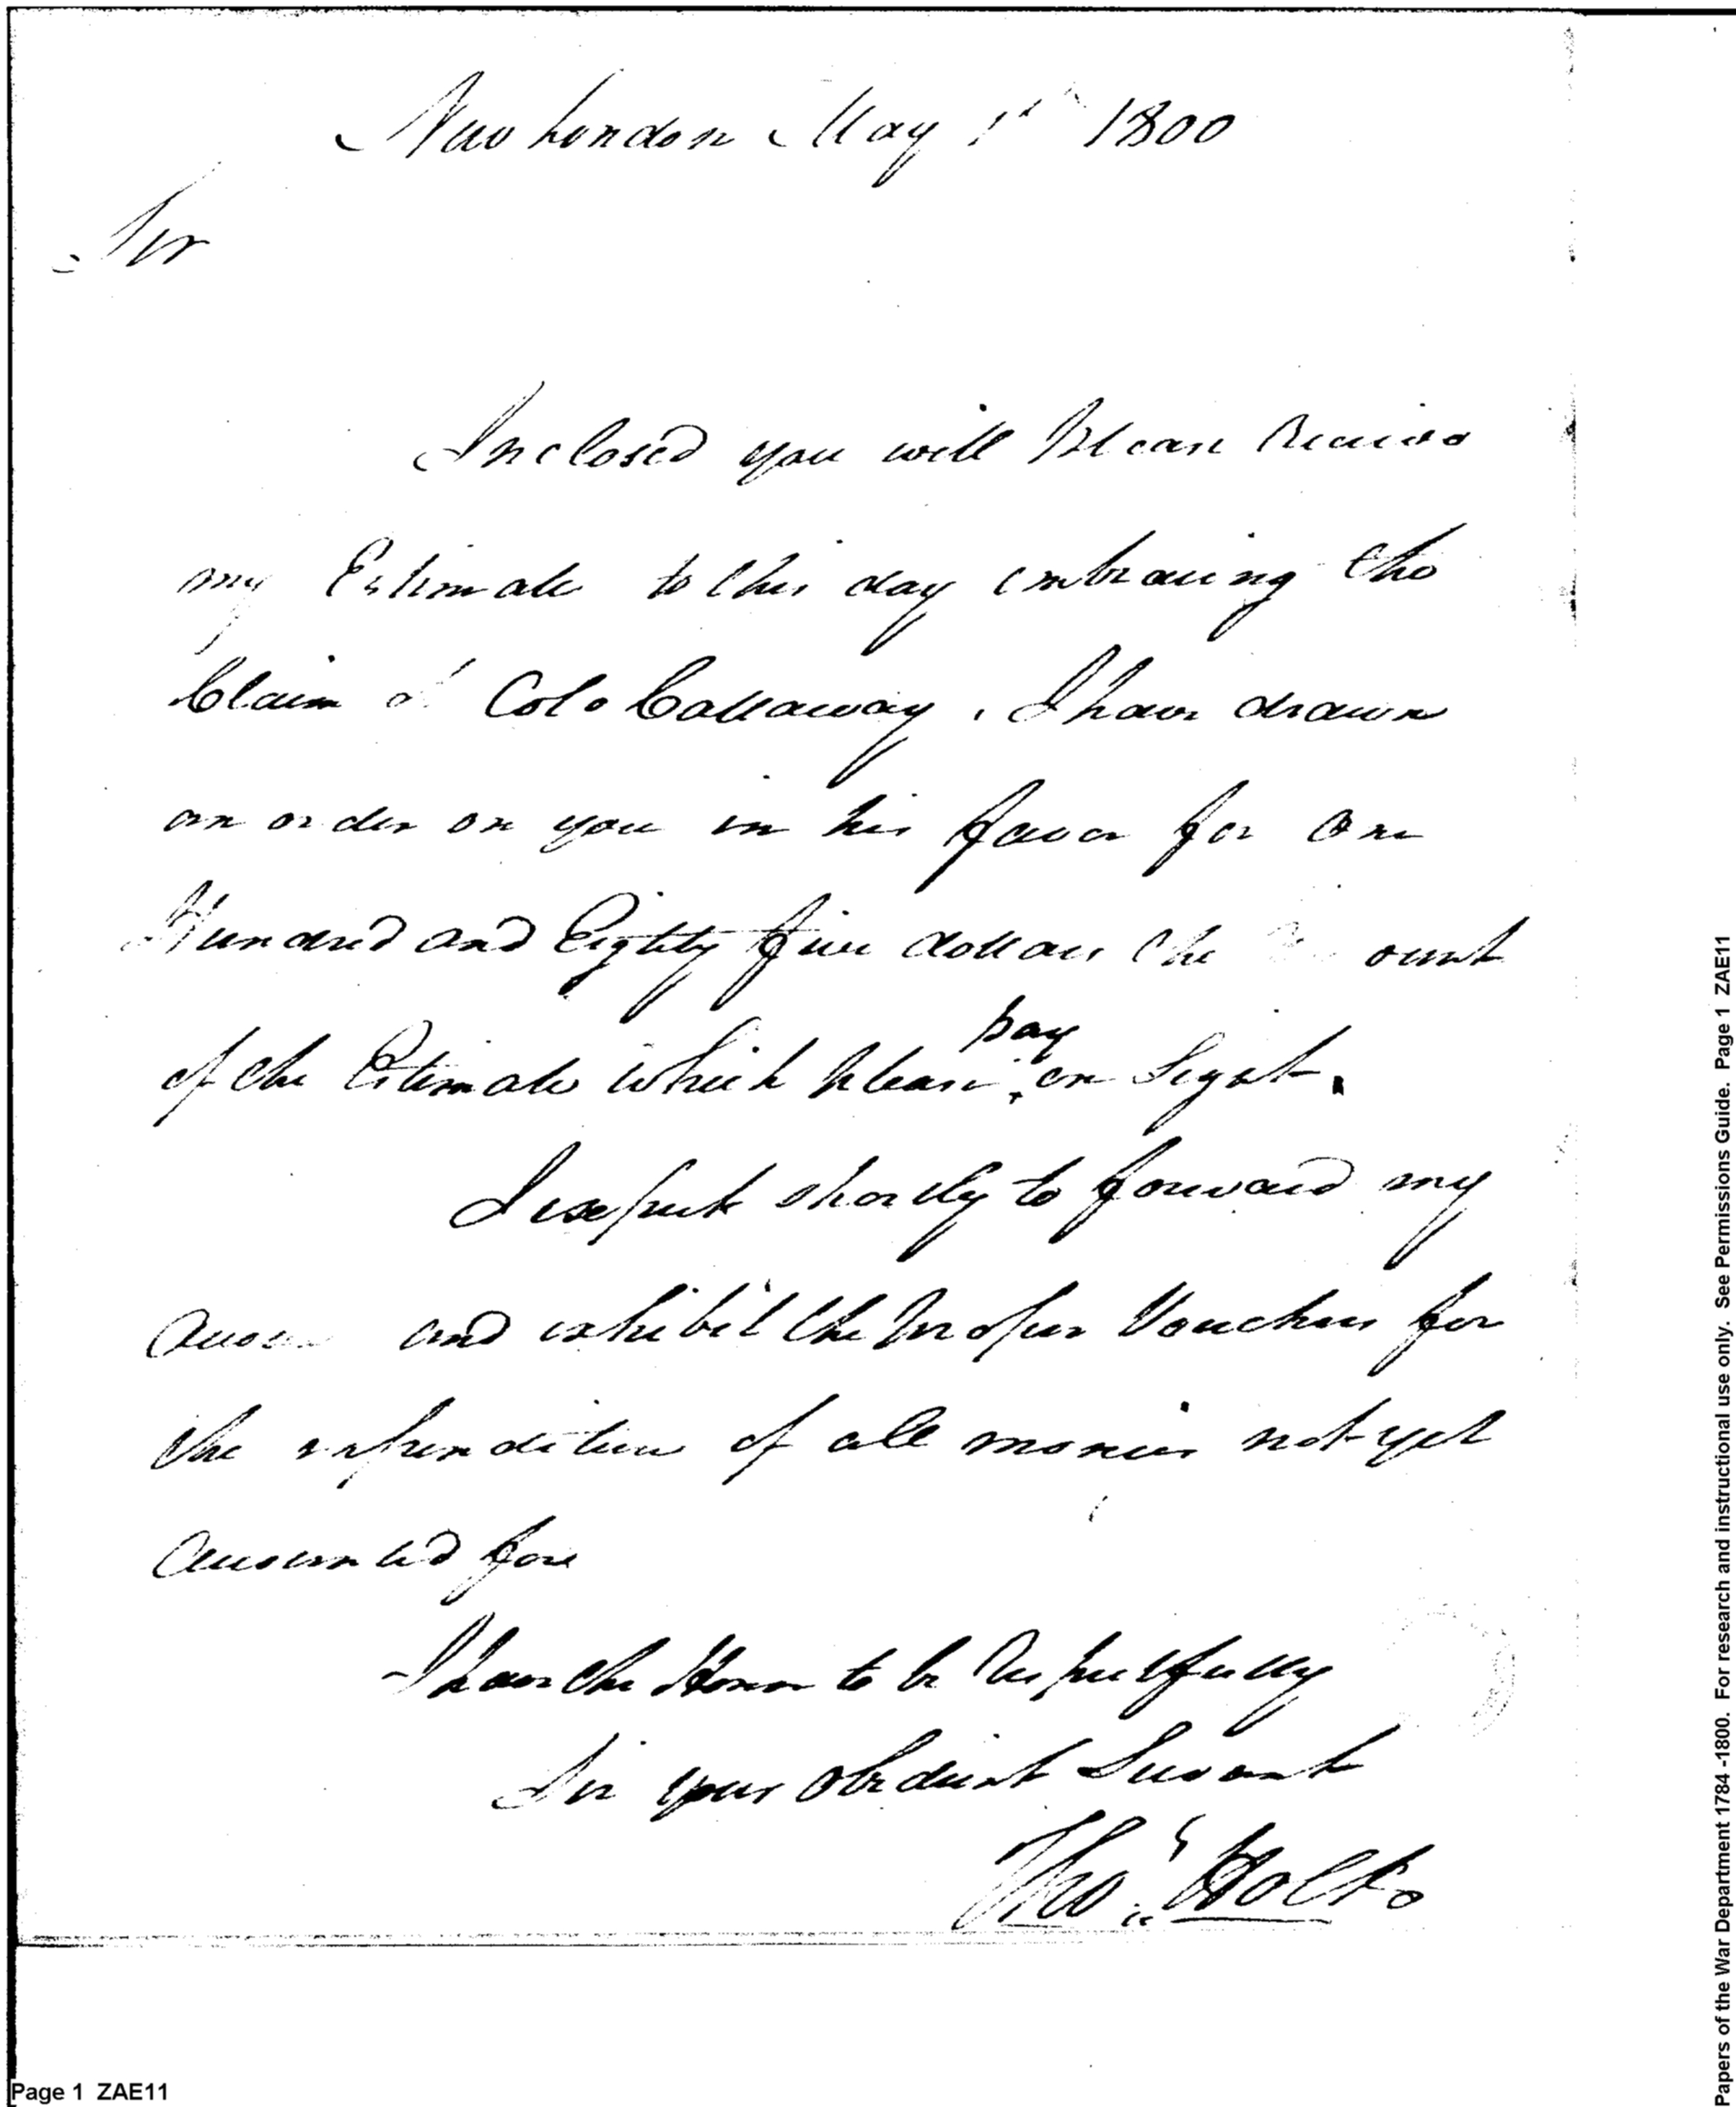 New London May 1st 1800
Sir
Inclosed you will Please Receive
my Estimate to this day embracing the
Claim of Colo Callaway, I have drawn
an order on you in his favor for One
Hundred and Eighty five dollars the ount
of the Estimate which please pay on Sight.
I expect shortly to forward my
and exhibit the proper Vouchers for
the expenditure of all monies not yet
accounted fore
I have the Honor to be Respectfully
Sir your Obedient Servant
Thos. Holt
Page 1 ZAE11
Papers of the War Department 1784 -1800. For research and instructional use only. See Permissions Guide. Page 1 ZAE11